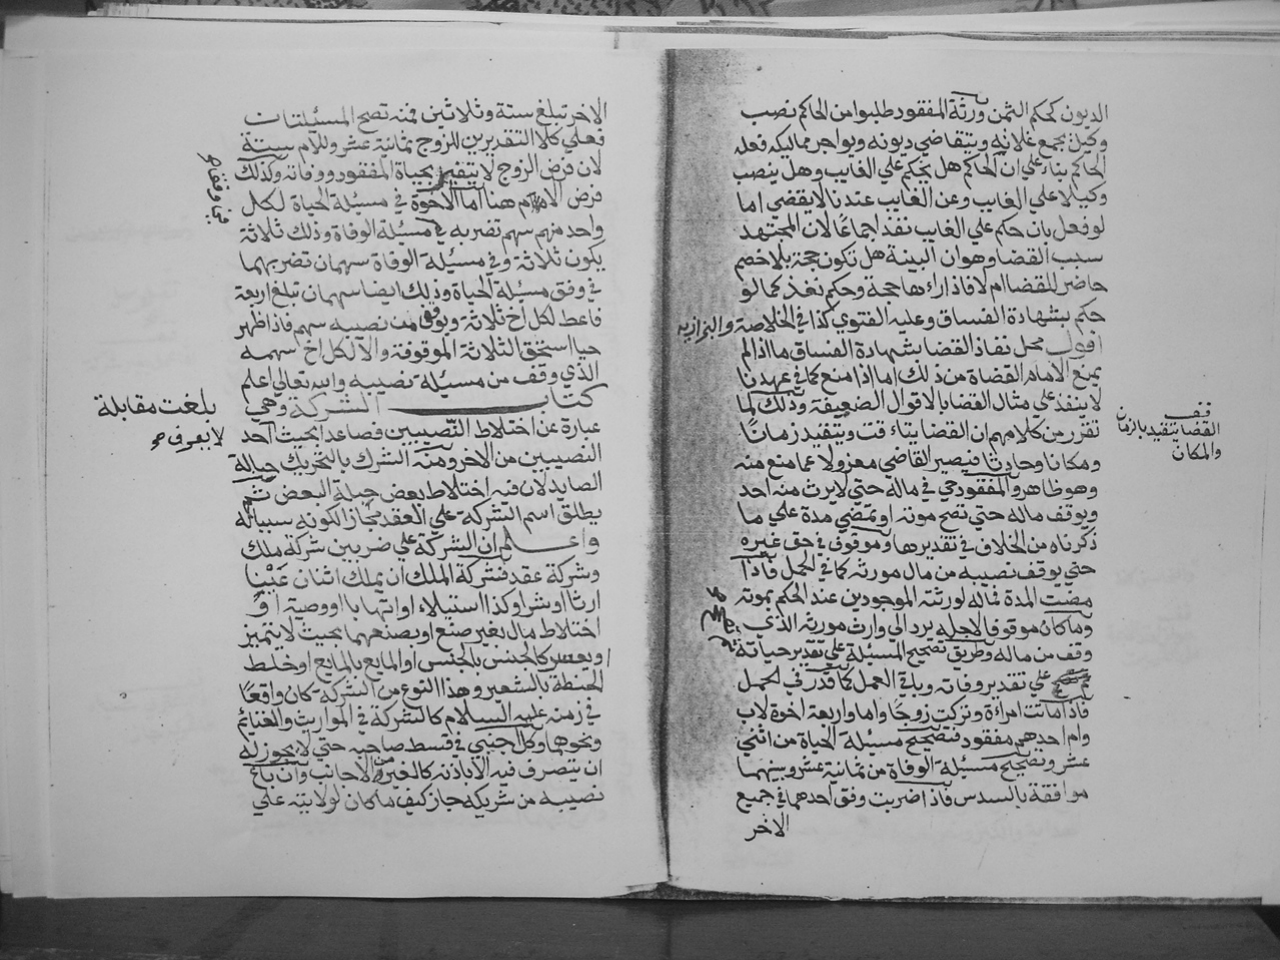 الديون كحكم الثمن ورثة المفقود طلبوا من الحاكم نصب
وكيل يجمع غلاته ويتقاضي ديونه ويواجر مماليكه فعله
الحاكم بناء علي ان الحاكم هل يحكم علي الغايب وهل ينصب
وكيلا علي الغايب وعن الغايب عندنا لا يقضي اما
لو فعل بان حكم علي الغايب نفذ اجماعًا لان المجتهد
سبب القضا وهو ان البينة هل تكون حجة بلا خصم
حاضر للقضا ام لا فاذا راها حجة وحكم نفذ كما لو
حكم بشهادة الفساق وعليه الفتوي كذا في الخلاصة والبزازيه
اقول محل نفاذ القضا بشهادة الفساق ما اذا لم
يمنع الامام القضاة من ذلك اما اذا منع كما في عهدنا
لا ينفذ علي مثال القضا بالاقوال الضعيفة وذلك لما
تقرر من كلامهم ان القضا يتاقت ويتقيد زمانًا
ومكانا وحادثا فيصير القاضي معزولا عما منع منه
وهو ظاهر والمفقود حي في ماله حتي لا يرث منه احد
ويوقف ماله حتي تصح موته او تمضي مدة علي ما
ذكرناه من الخلاف في تقديرها وموقوف في حق غيره
حتي يوقف نصيبه من مال مورثه كما في الحمل فاذا
مضت المدة فماله لورثته الموجودين عند الحكم بموته
وما كان موقوفا لاجله يرد الي وارث مورثه الذي
وقف من ماله وطريق تصحيح المسيلة علي تقدير حياته
علي تقدير وفاته وباقي العمل كما قدر في الحمل
فاذا ماتت امراة وتركت زوجًا واما واربعة اخوة لاب
وام احدهم مفقود فتصحيح مسيلة الحياة من اثني
عشر وتصحيح مسيلة الوفاة من ثمانية عشر وبينهما
موافقة بالسدس فاذا ضربت وفق احدهما في جميع
الاخر
قف
القضا يتقيد بالزمان
والمكان
الاخر تبلغ ستة وثلاثين فمنه تصح المسئلتان
فعلي كلا التقديرين للزوج ثمانية عشر وللام ستة
لان فرض الزوج لا يتغير بحياة المفقود ووفاته وكذلك
فرض الام هنا اما الاخوة في مسيلة الحياة لكل
واحد منهم سهم تضربه في مسيلة الوفاة وذلك ثلاثة
يكون ثلاثة وفي مسيلة الوفاة سهمان تضربهما
في وفق مسيلة الحياة وذلك ايضا سهمان تبلغ اربعة
فاعط لكل اخ ثلاثة ويوقف من نصيبه سهم فاذا ظهر
حيا استحق الثلاثة الموقوفة والا لكل اخ سهمه
الذي وقف من مسيلة نصيبه والله تعالي اعلم
كتاب الشركة وهي
عبارة عن اختلاط النصيبين فصاعدا بحيث احد
النصيبين من الاخر ومنه الشرك بالتحريك حبالة
الصايد لان فيه اختلاط بعض حبله البعض ثم
يطلق اسم الشركة علي العقد مجازا لكونه سببا له
واعلم ان الشركة علي ضربين شركة ملك
وشركة عقد فشركة الملك ان يملك اثنان عَيْنًا
ارثا او شرا وكذا استيلاء او اتهابا او وصية او
اختلاط مال بغير صنع او بصنعهما بحيث لا يتميز
او يعسر كالجنس بالجنس او المايع بالمايع او خلط
الحنطة بالشعير وهذا النوع من الشركة كان واقعًا
في زمنه عليه السلام كالشركة في المواريث والغنايم
ونحوها وكل اجنبي في قسط صاحبه حتي لا يجوز له
ان يتصرف فيه الا باذنه كالغير من الاجانب وان باع
نصيبه من شريكه جاز كيف ما كان لولايته علي
بلغت مقابلة